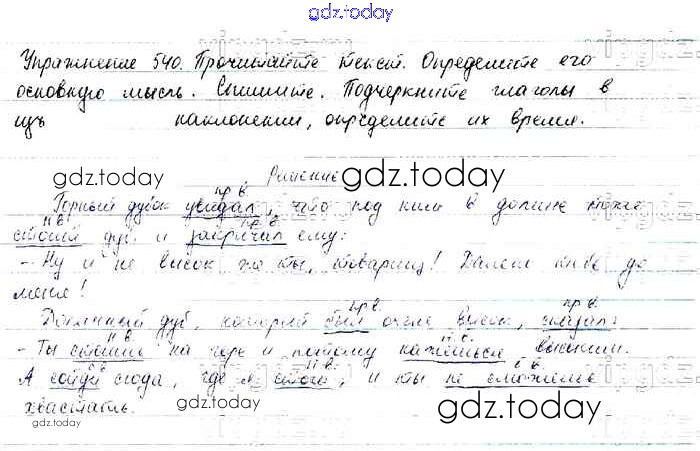 gdz.today
Упражнение 540. Прочитайте текст. Определите его
основную мысль. Спишите. Подчеркните глаголы в
изъ наклонении, определите их время.
Решение
gdz.today
пр в.
Горный дубок увидал, что под ним в долине тоже
н в. пр в.
стоит дуб и закричал ему:
– Ну и не высок же ты, товарищ! Далеко тебе до
меня!
gdz.today
пр в. пр в.
Долинный дуб, который был очень высок, сказал:
н в. н в.
– Ты стоишь на горе и потому кажешься высоким.
н в. б в.
А сойди сюда, где я стою, и ты не сможешь
хвастать.
gdz.today
gdz.today
gdz.today